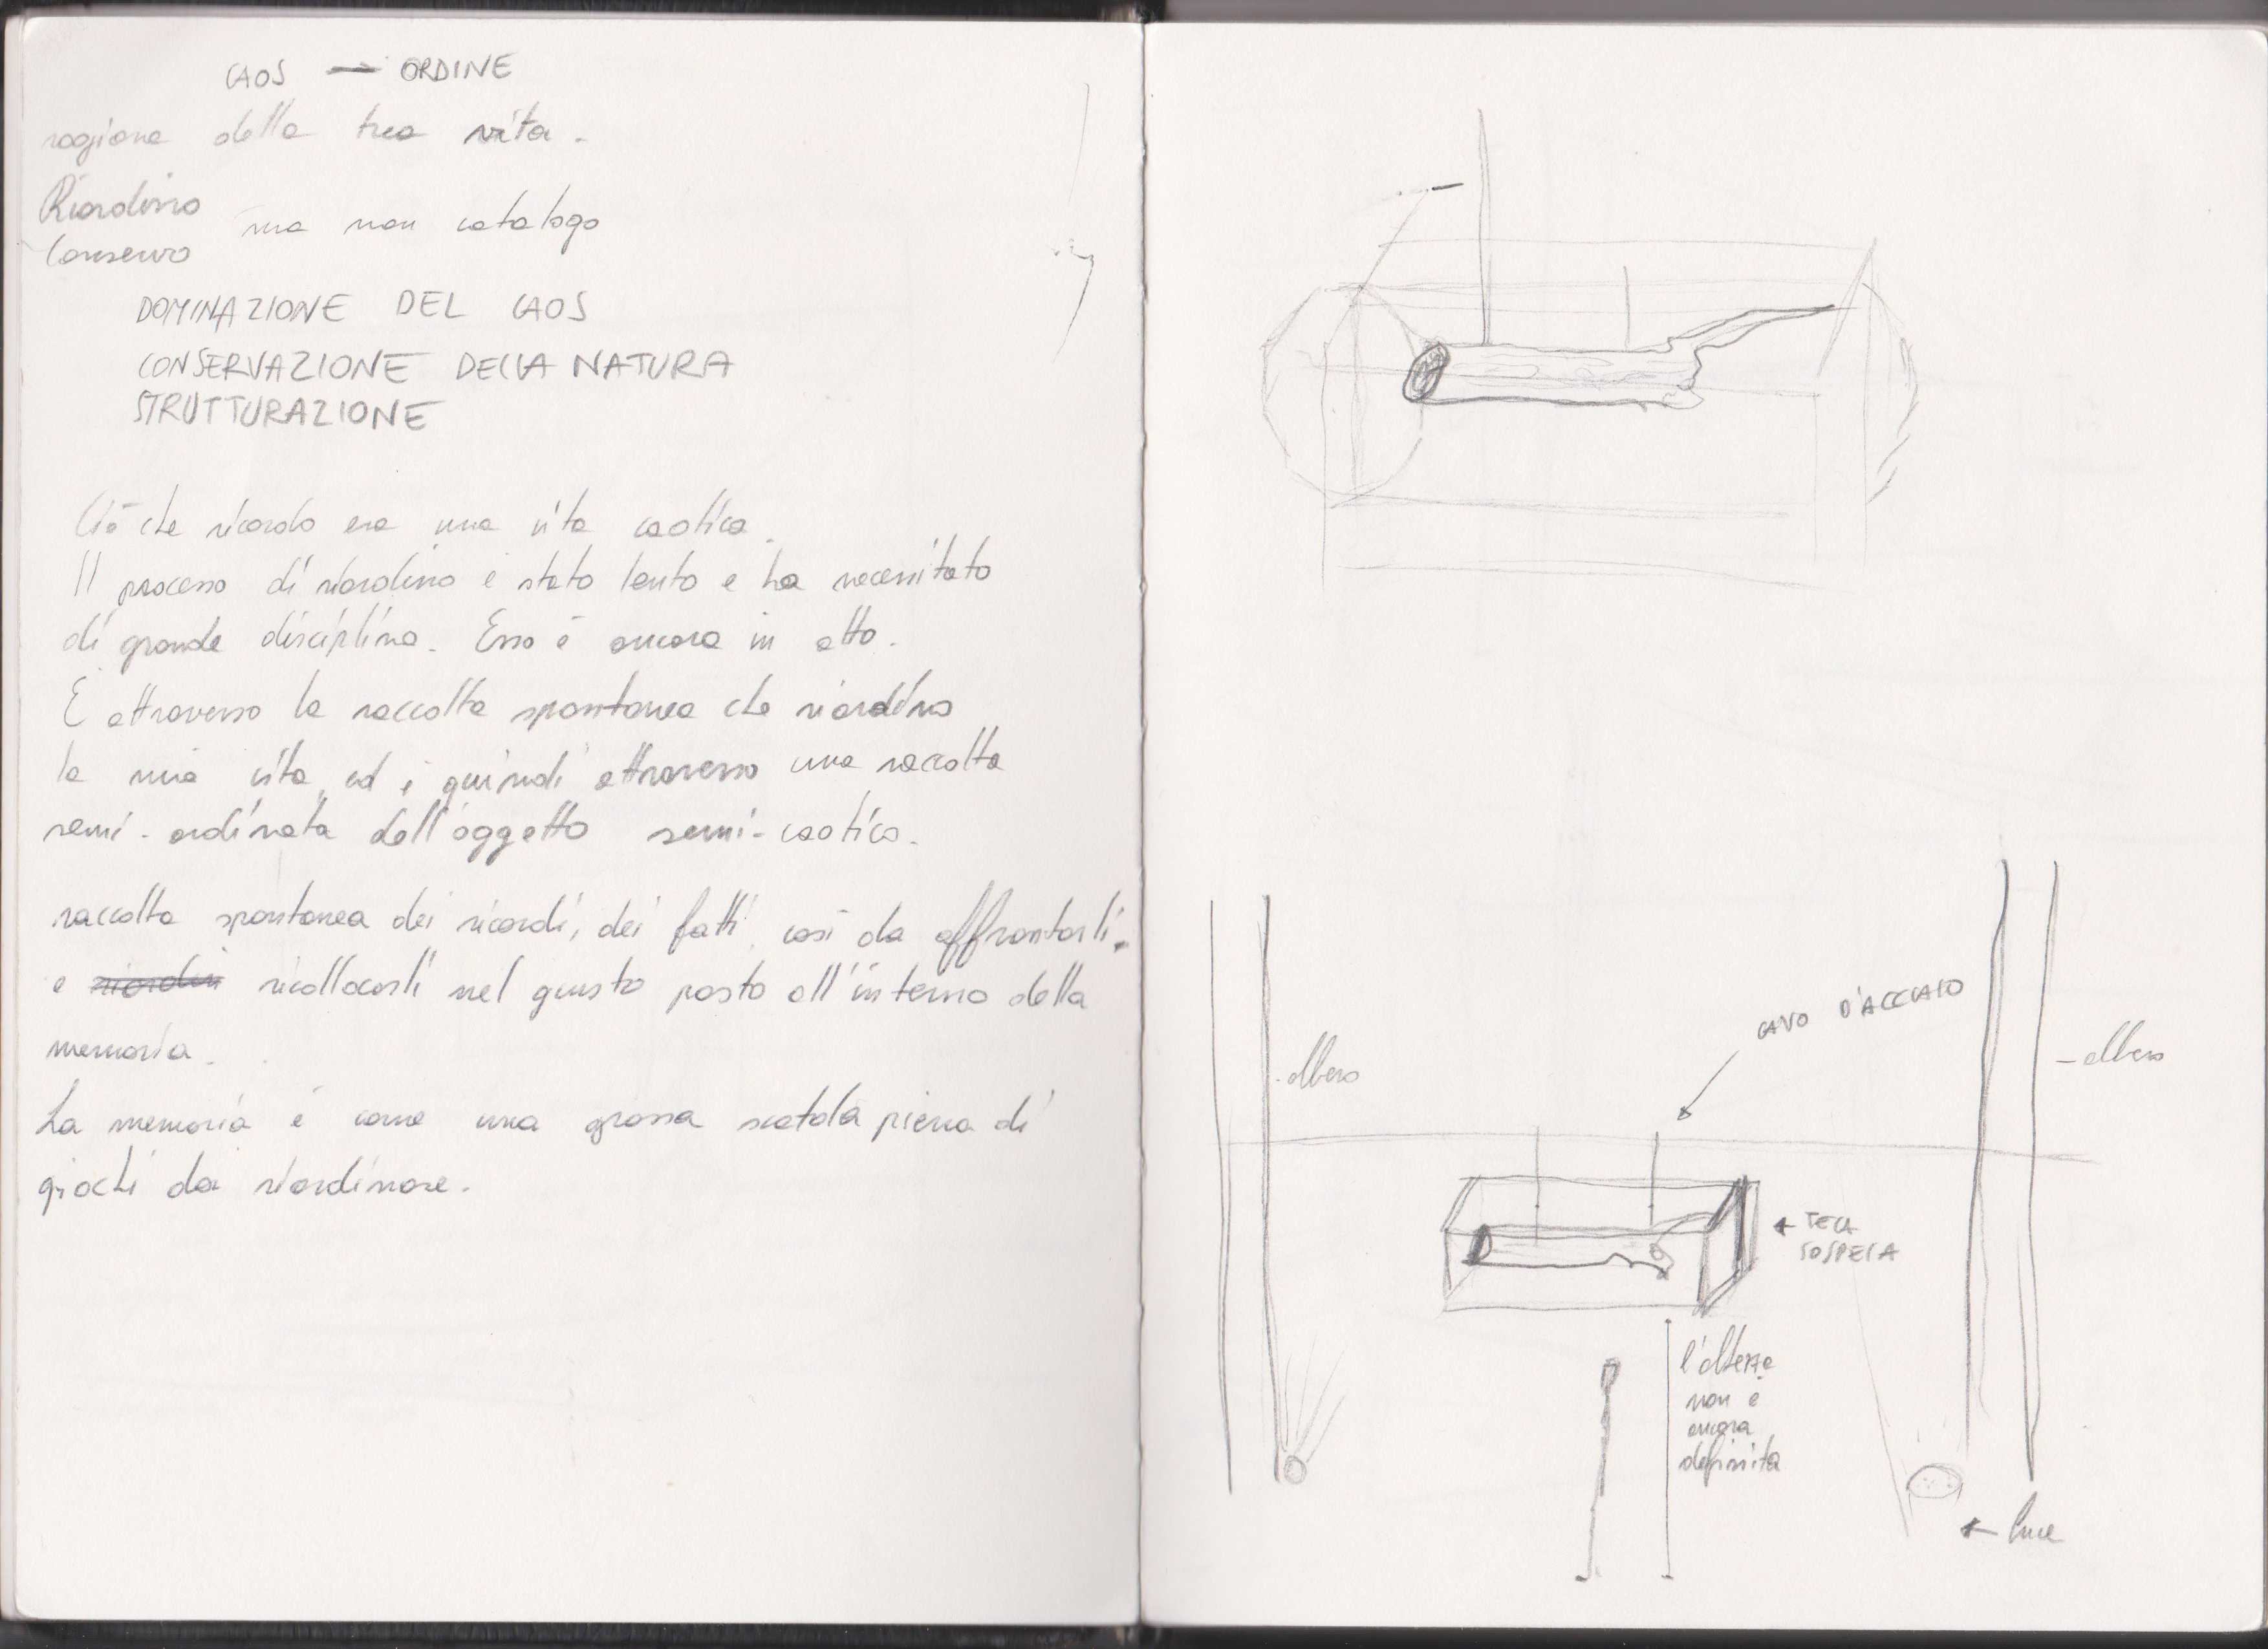 CAOS → ORDINE
ragione della tua vita.
Riordino
ma non catalogo
Conservo
DOMINAZIONE DEL CAOS
CONSERVAZIONE DELLA NATURA
STRUTTURAZIONE
Ciò che ricordo era una vita caotica.
Il processo di riordino è stato lento e ha necessitato
di grande disciplina. Esso è ancora in atto.
È attraverso la raccolta spontanea che riordino
la mia vita, ed è quindi attraverso una raccolta
semi-ordinata dell'oggetto semi-caotico.
raccolta spontanea dei ricordi, dei fatti, così da affrontarli.
e riordin ricollocarli nel giusto posto all'interno della
memoria.
La memoria è come una grossa scatola piena di
giochi da riordinare.
CAVO D'ACCIAIO
albero
- albero
← TECA
SOSPESA
l'altezza
non è
ancora
definita
← luce